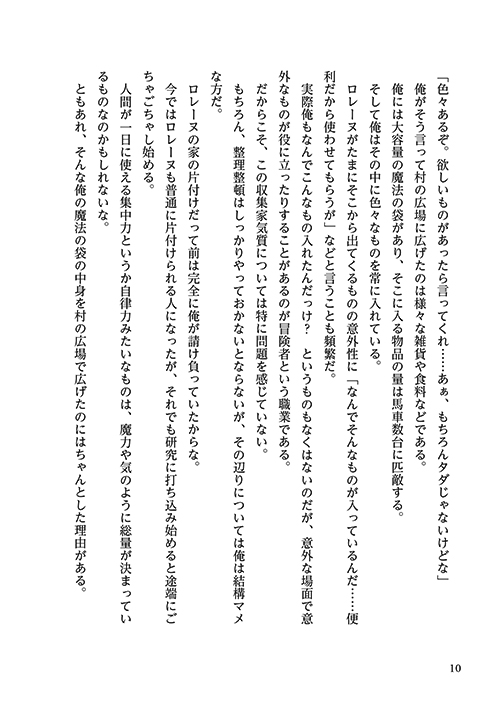 「色々あるぞ。欲しいものがあったら言ってくれ……あぁ、もちろんタダじゃないけどな」
俺がそう言って村の広場に広げたのは様々な雑貨や食料などである。
俺には大容量の魔法の袋があり、そこに入る物品の量は馬車数台に匹敵する。
そして俺はその中に色々なものを常に入れている。
ロレーヌがたまにそこから出てくるものの意外性に「なんでそんなものが入っているんだ……便
利だから使わせてもらうが」などと言うことも頻繁だ。
実際俺もなんでこんなもの入れたんだっけ？　というものもなくはないのだが、意外な場面で意
外なものが役に立ったりすることがあるのが冒険者という職業である。
だからこそ、この収集家気質については特に問題を感じていない。
もちろん、整理整頓はしっかりやっておかないとならないが、その辺りについては俺は結構マメ
な方だ。
ロレーヌの家の片付けだって前は完全に俺が請け負っていたからな。
今ではロレーヌも普通に片付けられる人になったが、それでも研究に打ち込み始めると途端にご
ちゃごちゃし始める。
人間が一日に使える集中力というか自律力みたいなものは、魔力や気のように総量が決まってい
るものなのかもしれないな。
ともあれ、そんな俺の魔法の袋の中身を村の広場で広げたのにはちゃんとした理由がある。
10